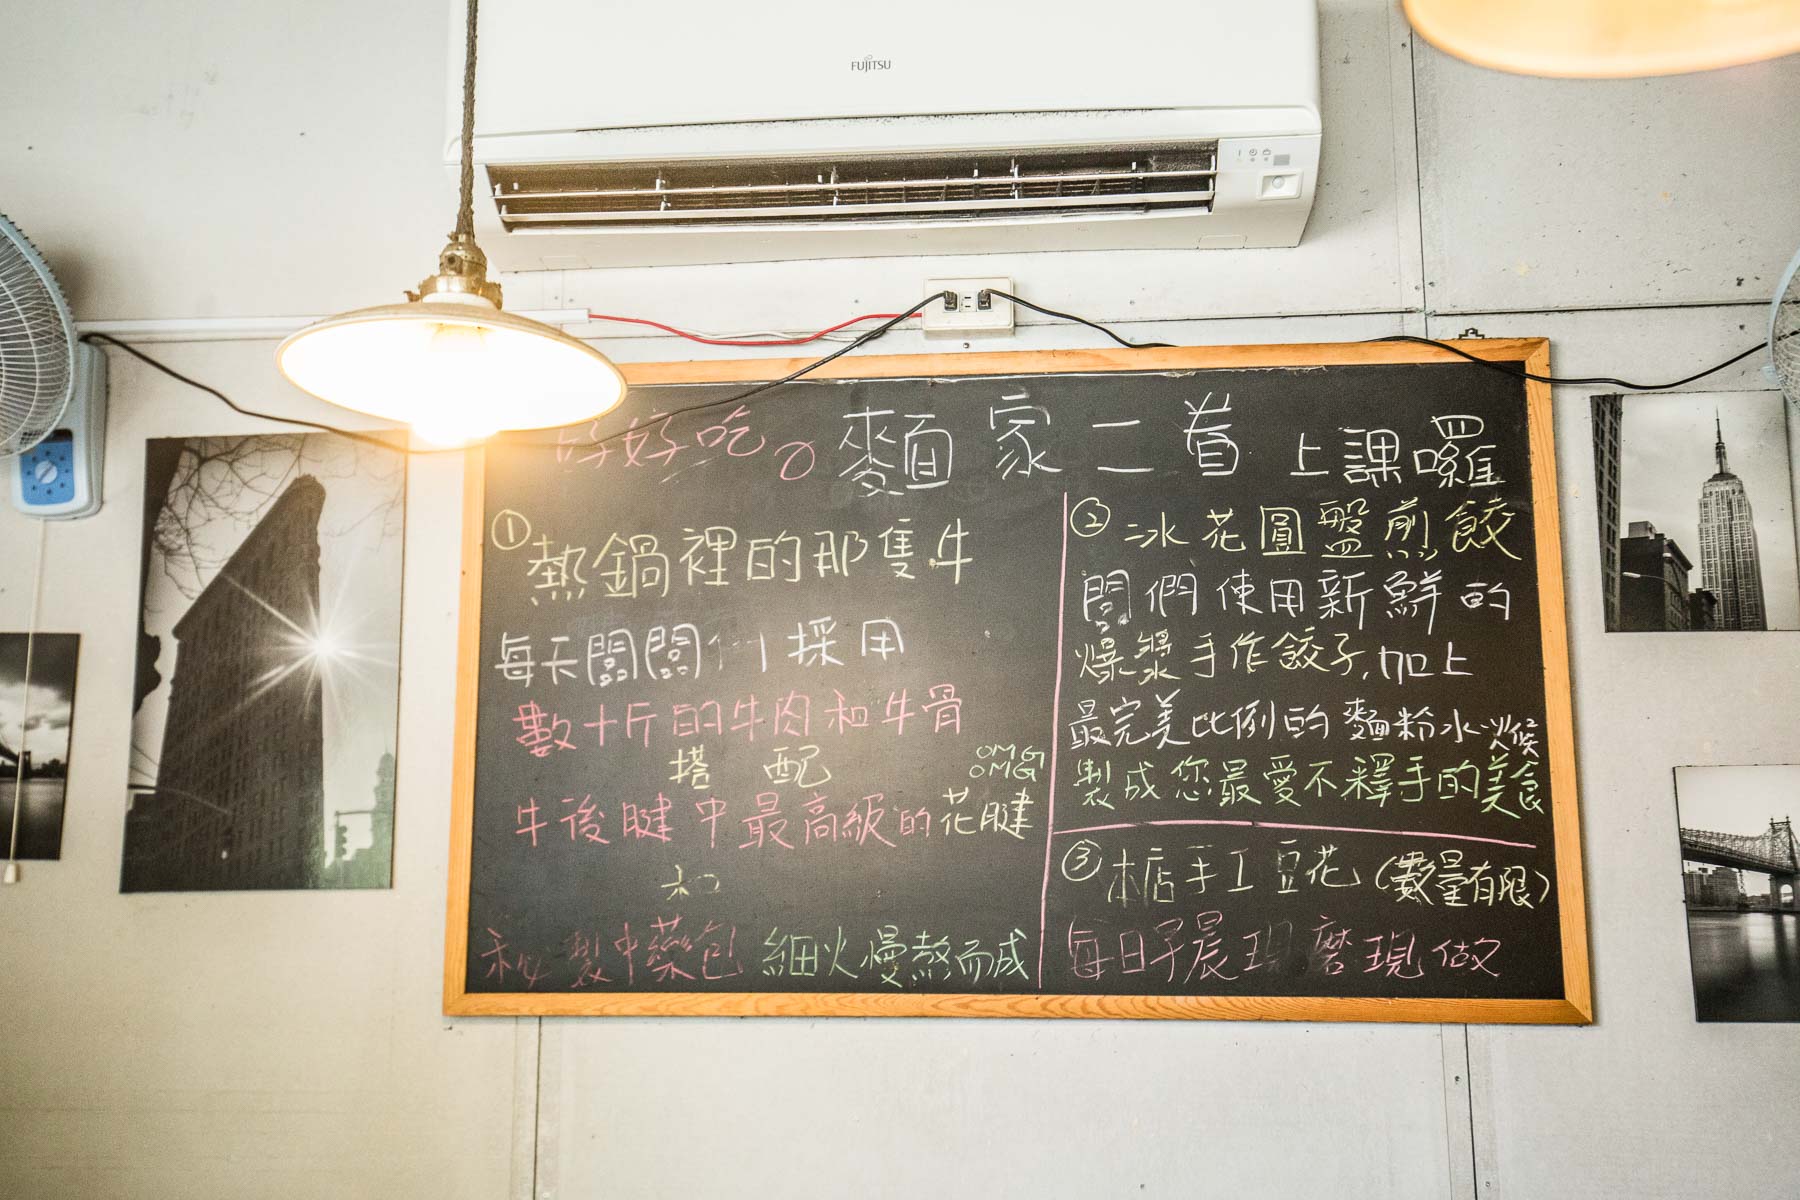 FUJITSU
好好吃。麵家二首 上課囉
① 熱鍋裡的那隻牛
每天闆闆們採用
數十斤的牛肉和牛骨
搭配
OMG
OMG
牛後腱中最高級的花腱
和
秘製中藥包 細火慢熬而成
② 冰花圓盤煎餃
闆們使用新鮮的
爆漿手作餃子,加上
最完美比例的麵粉水火候
製成您最愛不釋手的美食
③ 本店手工豆花(數量有限)
每日早晨現磨現做